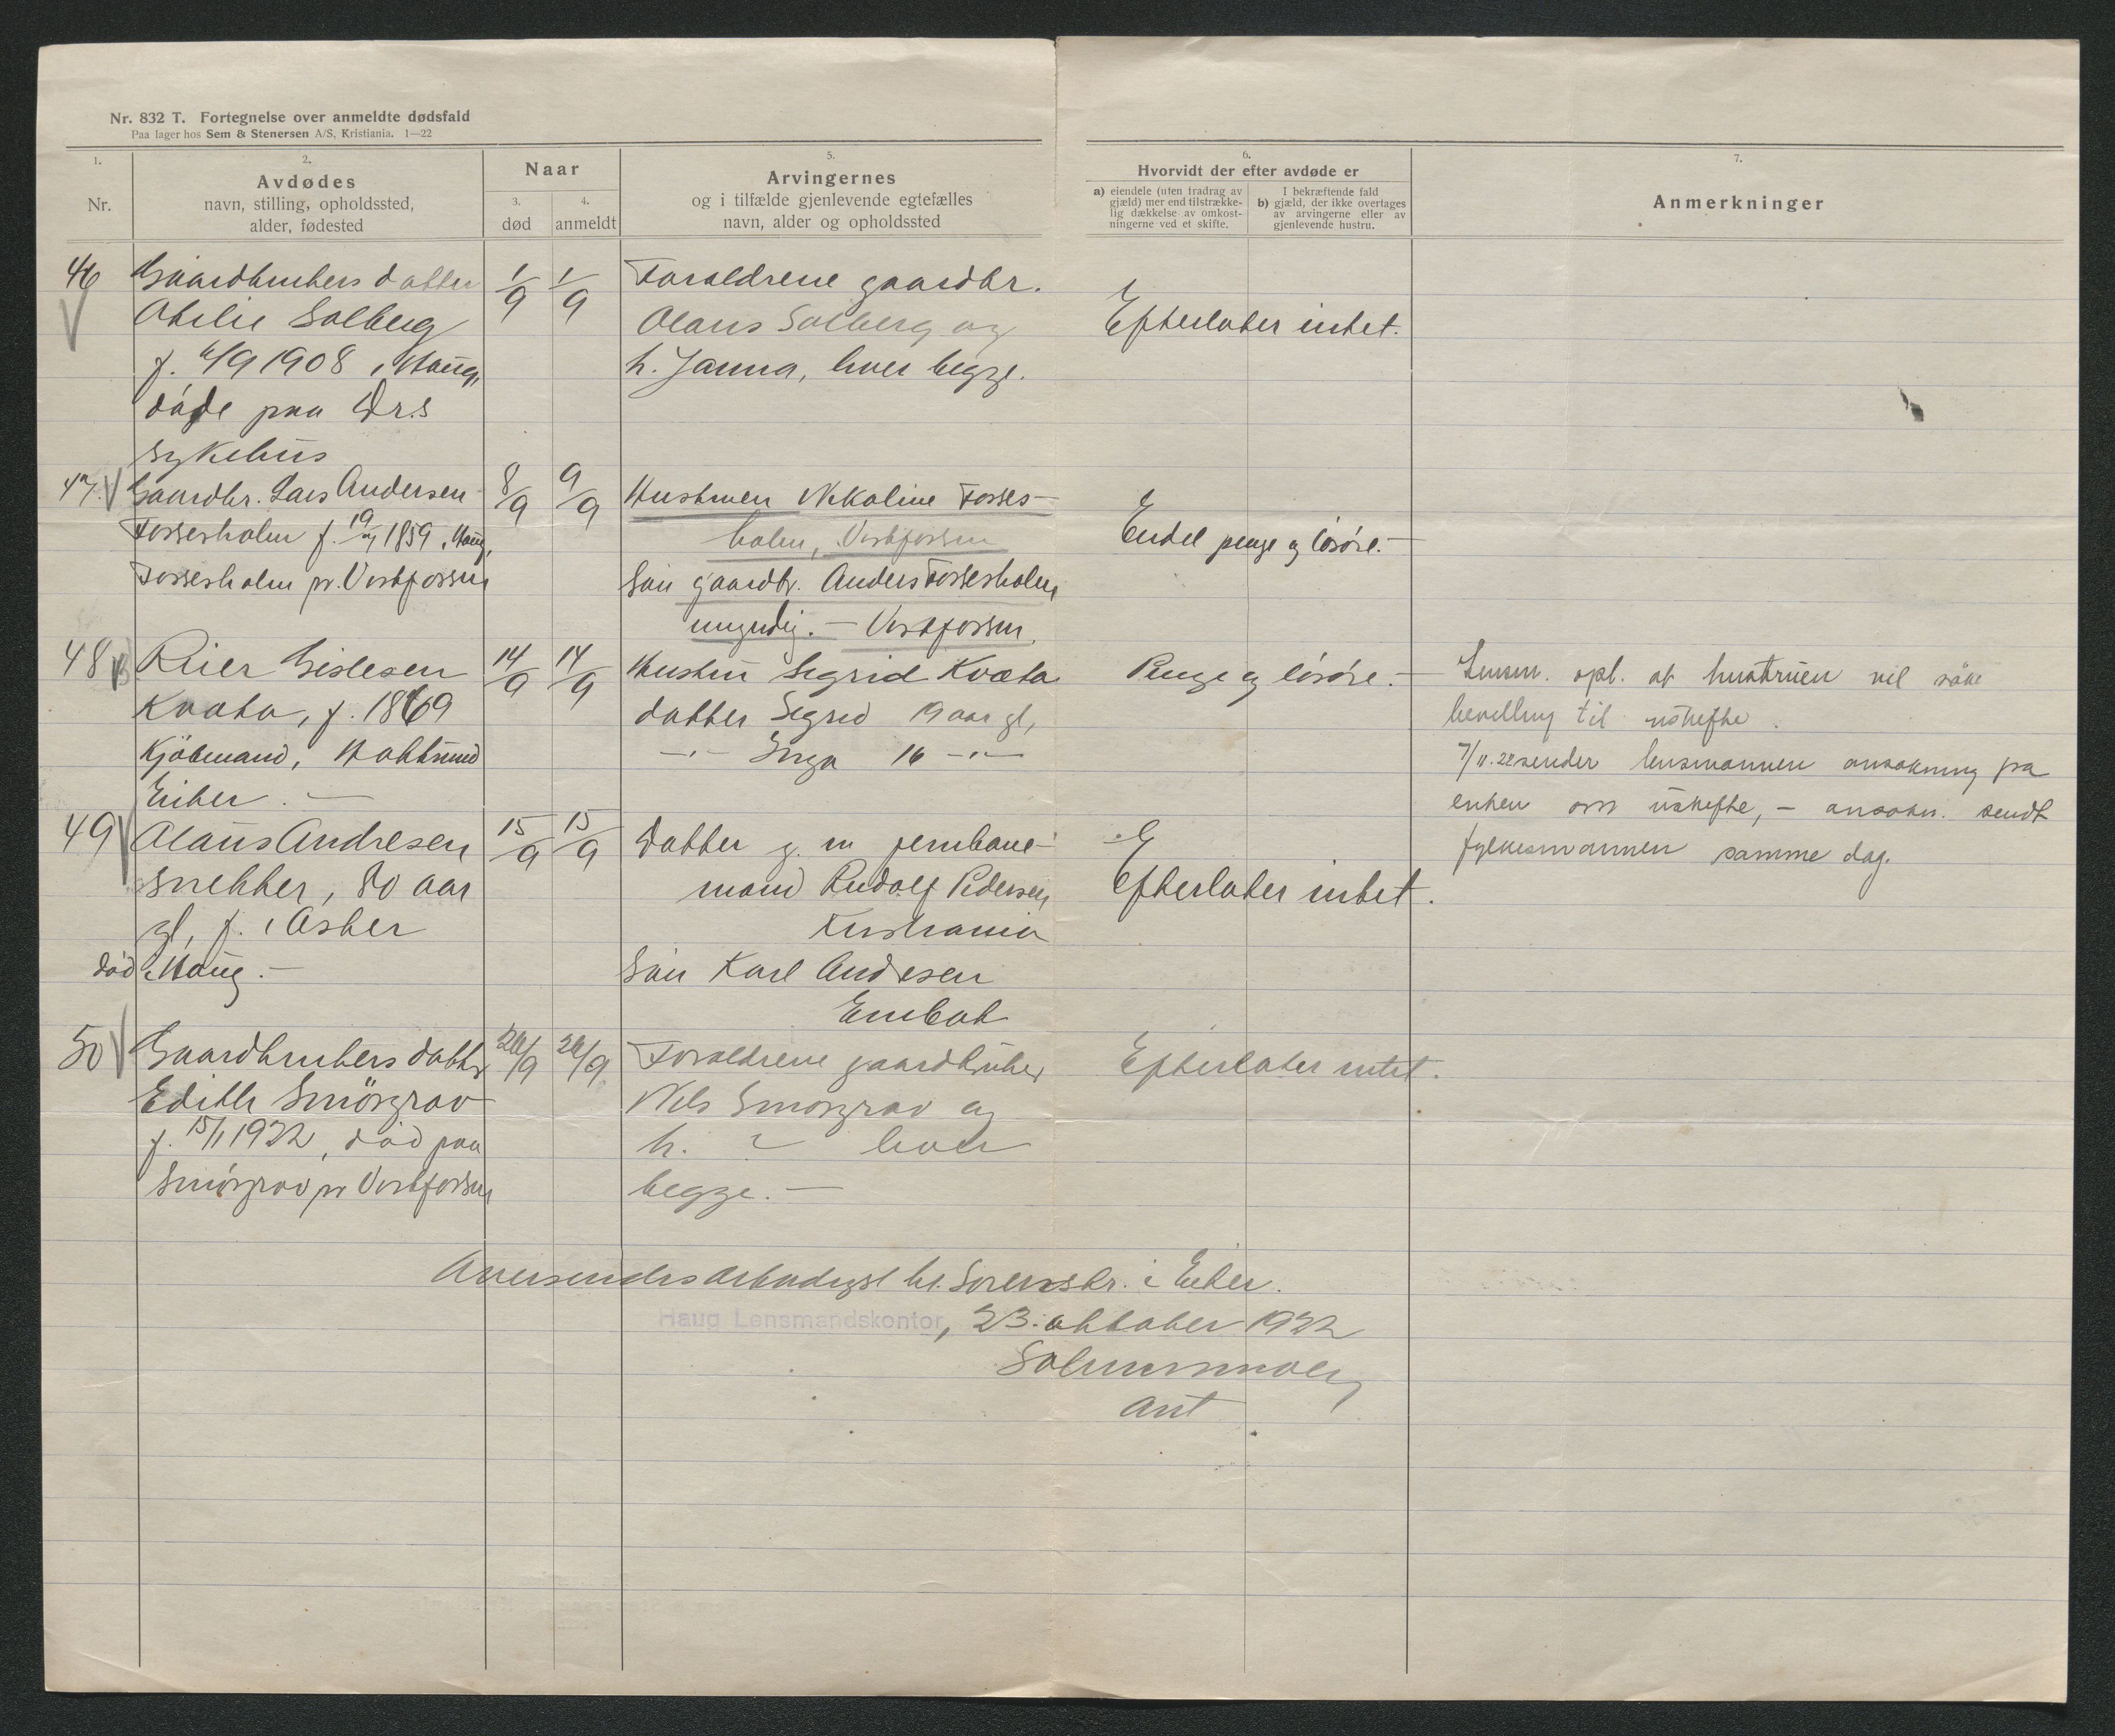 Nr. 832 T. Fortegnelse over anmeldte dødsfald
Paa lager hos Sem & Stenersen A/S, Kristiania. 1—22
1.
Nr.
2.
Avdødes
navn, stilling, opholdssted,
alder, fødested
Naar
3.
død
4.
anmeldt
5.
Arvingernes
og i tilfælde gjenlevende egtefælles
navn, alder og opholdssted
6.
Hvorvidt der efter avdøde er
a) eiendele (uten fradrag av
gjæld) mer end tilstrække-
lig dækkelse av omkost-
ningerne ved et skifte.
I bekræftende fald
b) gjæld, der ikke overtages
av arvingerne eller av
gjenlevende hustru.
7.
Anmerkninger
46
Gaardbrukers datter
Solberg
f. 1908 i Haug,
døde paa Dr.s
sykehus
1/9
1/9
Foraldrene gaardbr.
Olaus Solberg og
h. Janna, lever begge.
Efterlater intet.
47.
Gaardbr. Lars Andersen
Fossesholm f. 19/ 1859 i Haug,
Fossesholm pr. Vestfossen
8/9
9/9
Hustruen Nikoline Fosses-
holm, Vestfossen
Søn gaardbr. Anders Fossesholm
myndig. — Vestfossen.
Endel penge og løsøre.—
48
Reier Gislesen
Kvata, f. 1869
Kjøbmand, Hokksund
Eiker. —
14/9
14/9
Hustru Sigrid Kvata
datter Sigrid 19 aar gl,
—"— Inga 16 —"—
Penge og løsøre.—
Lensm. opl. at hustruen vil söke
bevilling til uskifte.
7/11.22 sender lensmannen ansökning fra
enken om uskifte, — ansökn. sendt
fylkesmannen samme dag.
49
Olaus Andresen
snekker, 80 aar
gl, f. i Asker
død i Haug. —
15/9
15/9
Datter g. m jernbane-
mand Rudolf Pedersen
Kristiania
Søn Karl Andresen
Efterlater intet.
50
Gaardbrukers datter
Edith Smörgrav
f. 15/1 1922, död paa
Smörgrav pr Vestfossen
26/9
26/9
Foraldrene gaardbruker
Nils Smörgrav og
h. ? lever
begge. —
Efterlater intet.
Aversendes ærbødigst hr. Sorenskr. i Eiker.
Haug Lensmandskontor, 23. oktober 1922